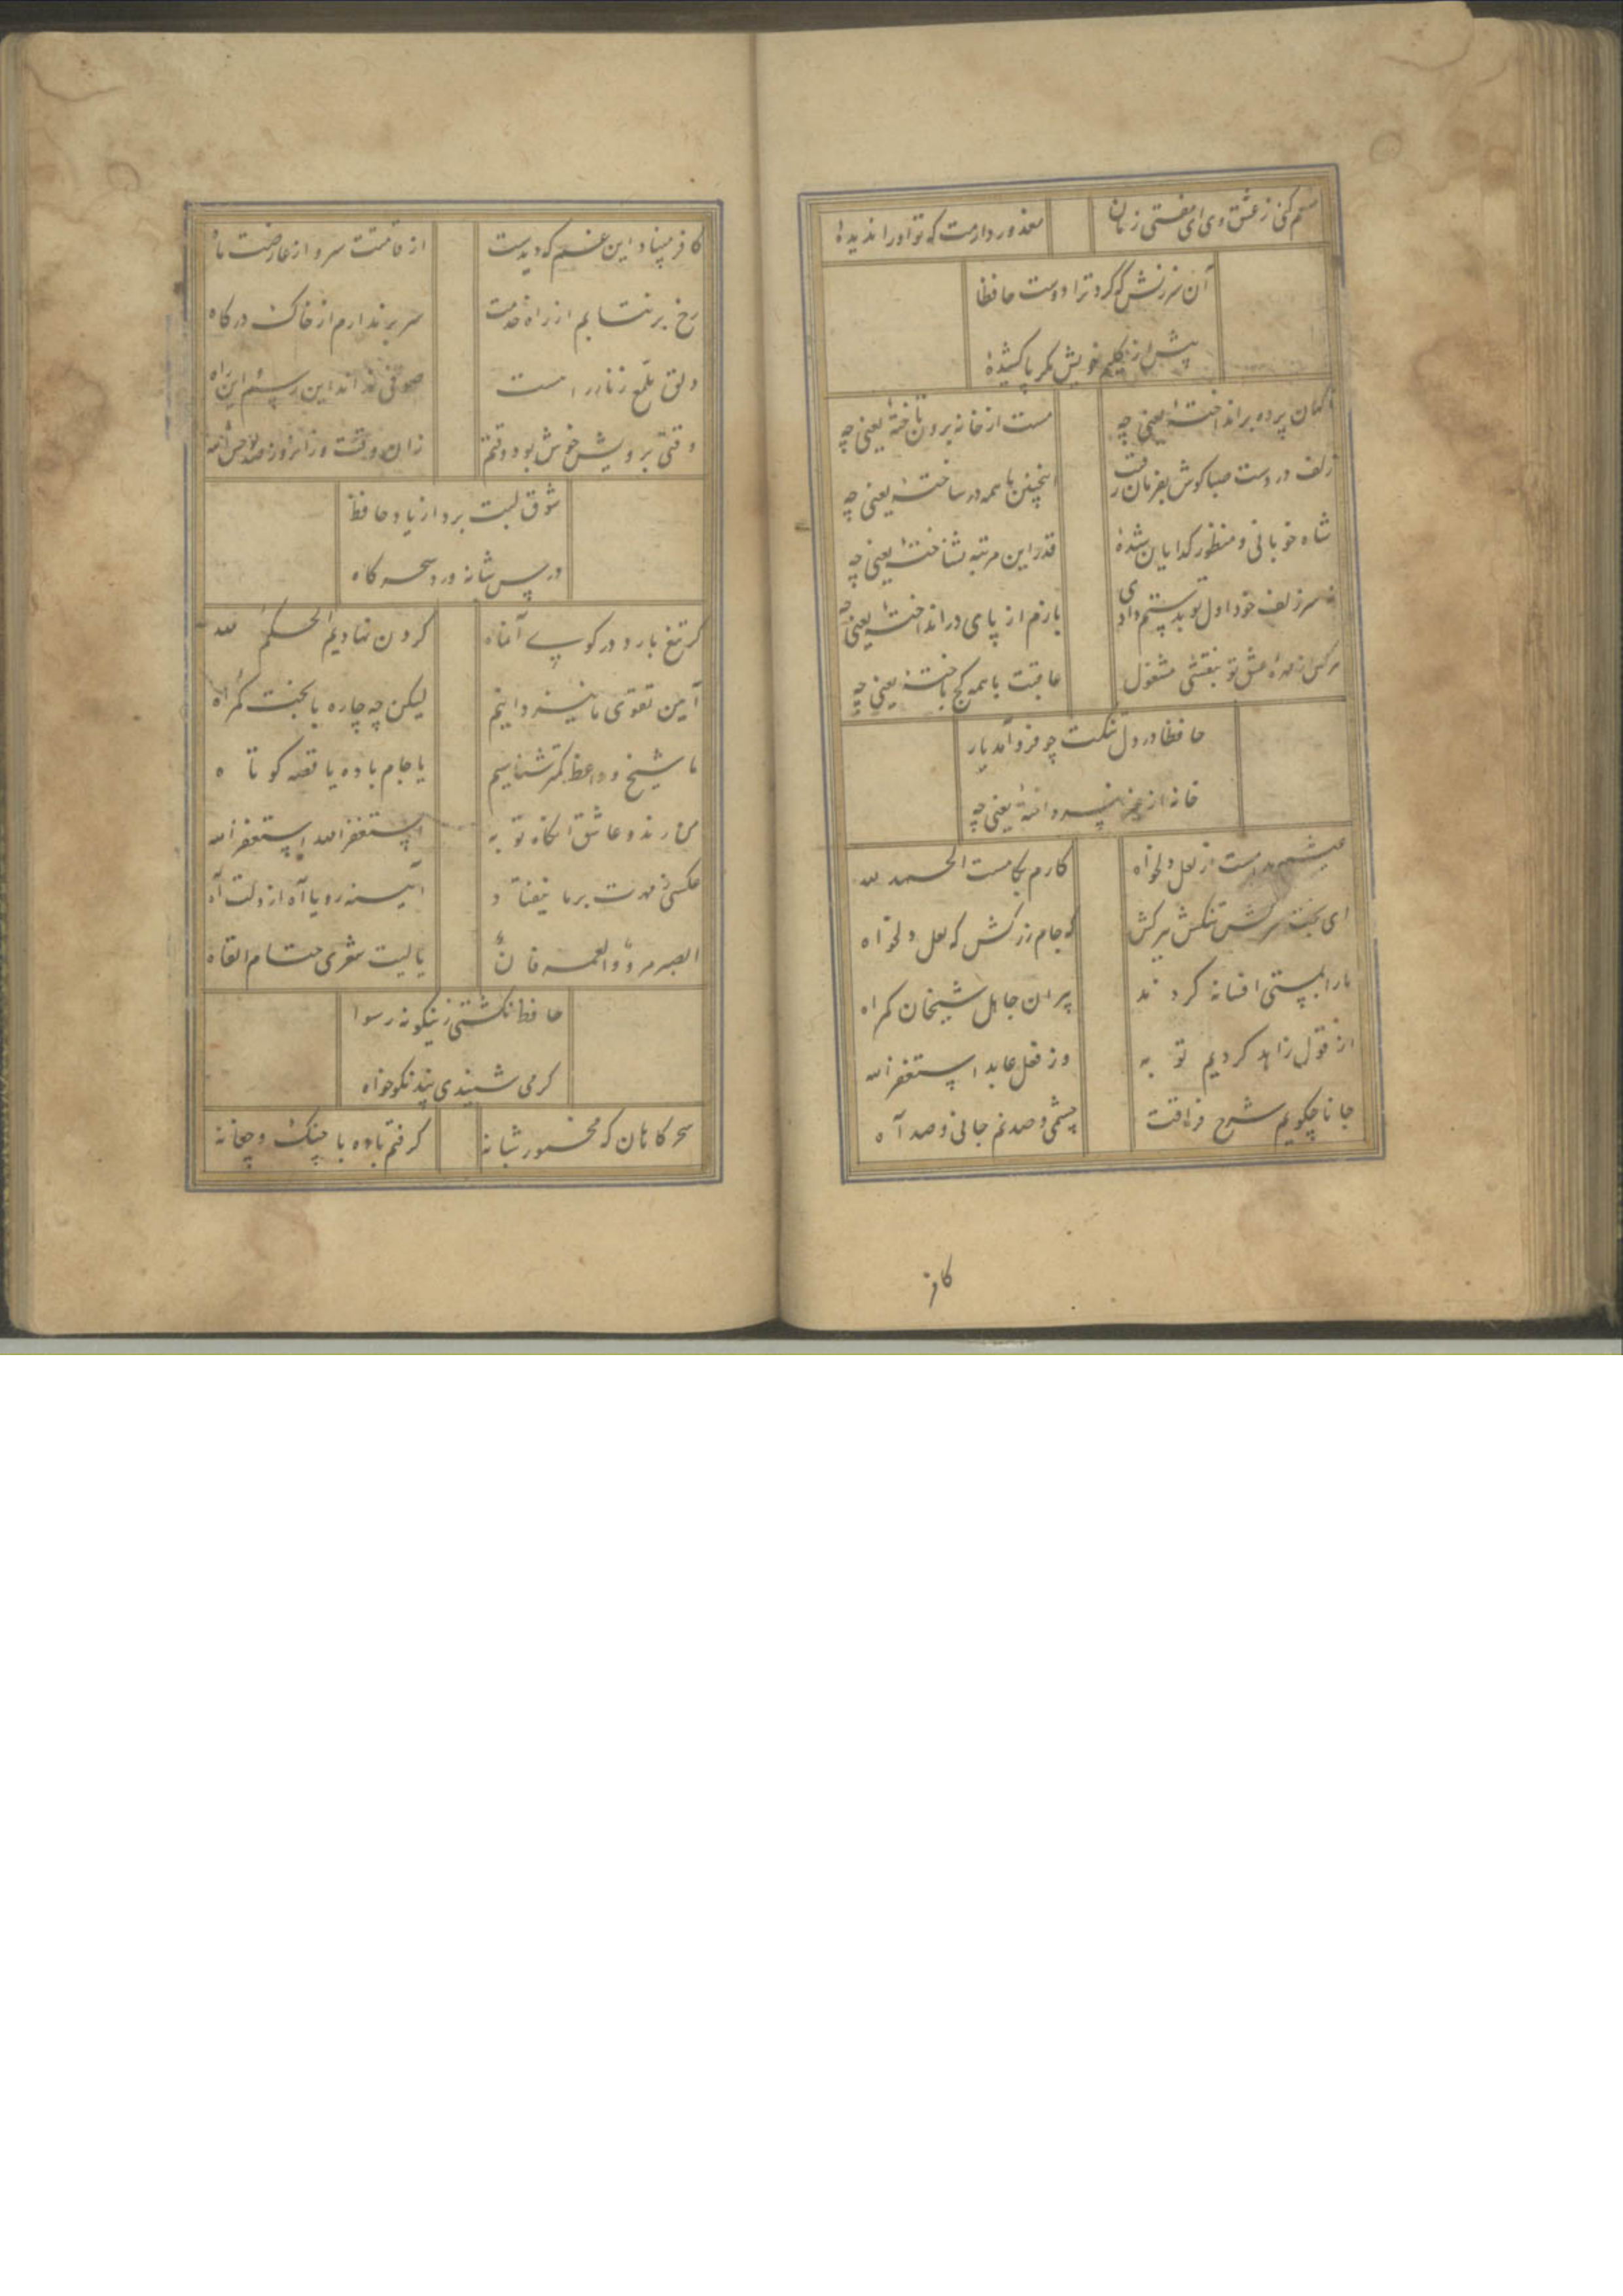 منعم کنی ز عشق وی ای مفتی زمان
معذور دارمت که تو او را ندیدهٔ
آن سرزنش که کرد ترا دوست حافظا
پیش از گلیم خویش مگر پا کشیدهٔ
ناگهان پرده برانداختهٔ یعنی چه
مست از خانه برون تاختهٔ یعنی چه
زلف در دست صبا گوش بفرمان رقیب
اینچنین با همه در ساختهٔ یعنی چه
شاه خوبانی و منظور گدایان شدهٔ
قدر این مرتبه نشناختهٔ یعنی چه
نه سر زلف خود اول تو بدستم دادی
بازم از پای در انداختهٔ یعنی چه
هر کس از مهرهٔ عشق تو بنقشی مشغول
عاقبت با همه کج باختهٔ یعنی چه
حافظا در دل تنگت چو فرود آمد یار
خانه از غیر نپرداختهٔ یعنی چه
عیشم مدامست از لعل دلخواه
کارم بکامست الحمد لله
ای بخت سرکش تنگش ببر کش
گه جام زر کش گه لعل دلخواه
ما را بمستی افسانه کردند
پیران جاهل شیخان گمراه
از قول زاهد کردیم توبه
وز فعل عابد استغفر الله
جانا چگویم شرح فراقت
چشمی و صد نم جانی و صد آه
کافر
کافر مبیناد این غم که دیدست
از قامتت سرو از عارضت ماه
رخ بر نتابم از راه خدمت
سر بر ندارم از خاک درگاه
دلق ملمع زنار راهست
صوفی نداند این رسم این راه
وقتی برویش خوش بود وقتم
شوق لبت برد از یاد حافظ
درس شبانه ورد سحرگاه
گر تیغ بارد در کوی آن ماه
گردن نهادیم الحکم لله
آیین تقوی ما نیز دانیم
لیکن چه چاره با بخت گمراه
ما شیخ و واعظ کمتر شناسیم
یا جام باده یا قصه کوتاه
من رند و عاشق آنگاه توبه
استغفر الله استغفر الله
عکسی ز مهرت بر ما نیفتاد
آیینه رویا آه از دلت آه
الصبر مر والعمر فان
یا لیت شعری حتام القاه
حافظ نگشتی زینگونه رسوا
گر می شنیدی پند نکوخواه
سحرگاهان که مخمور شبانه
گرفتم باده با چنگ و چغانه